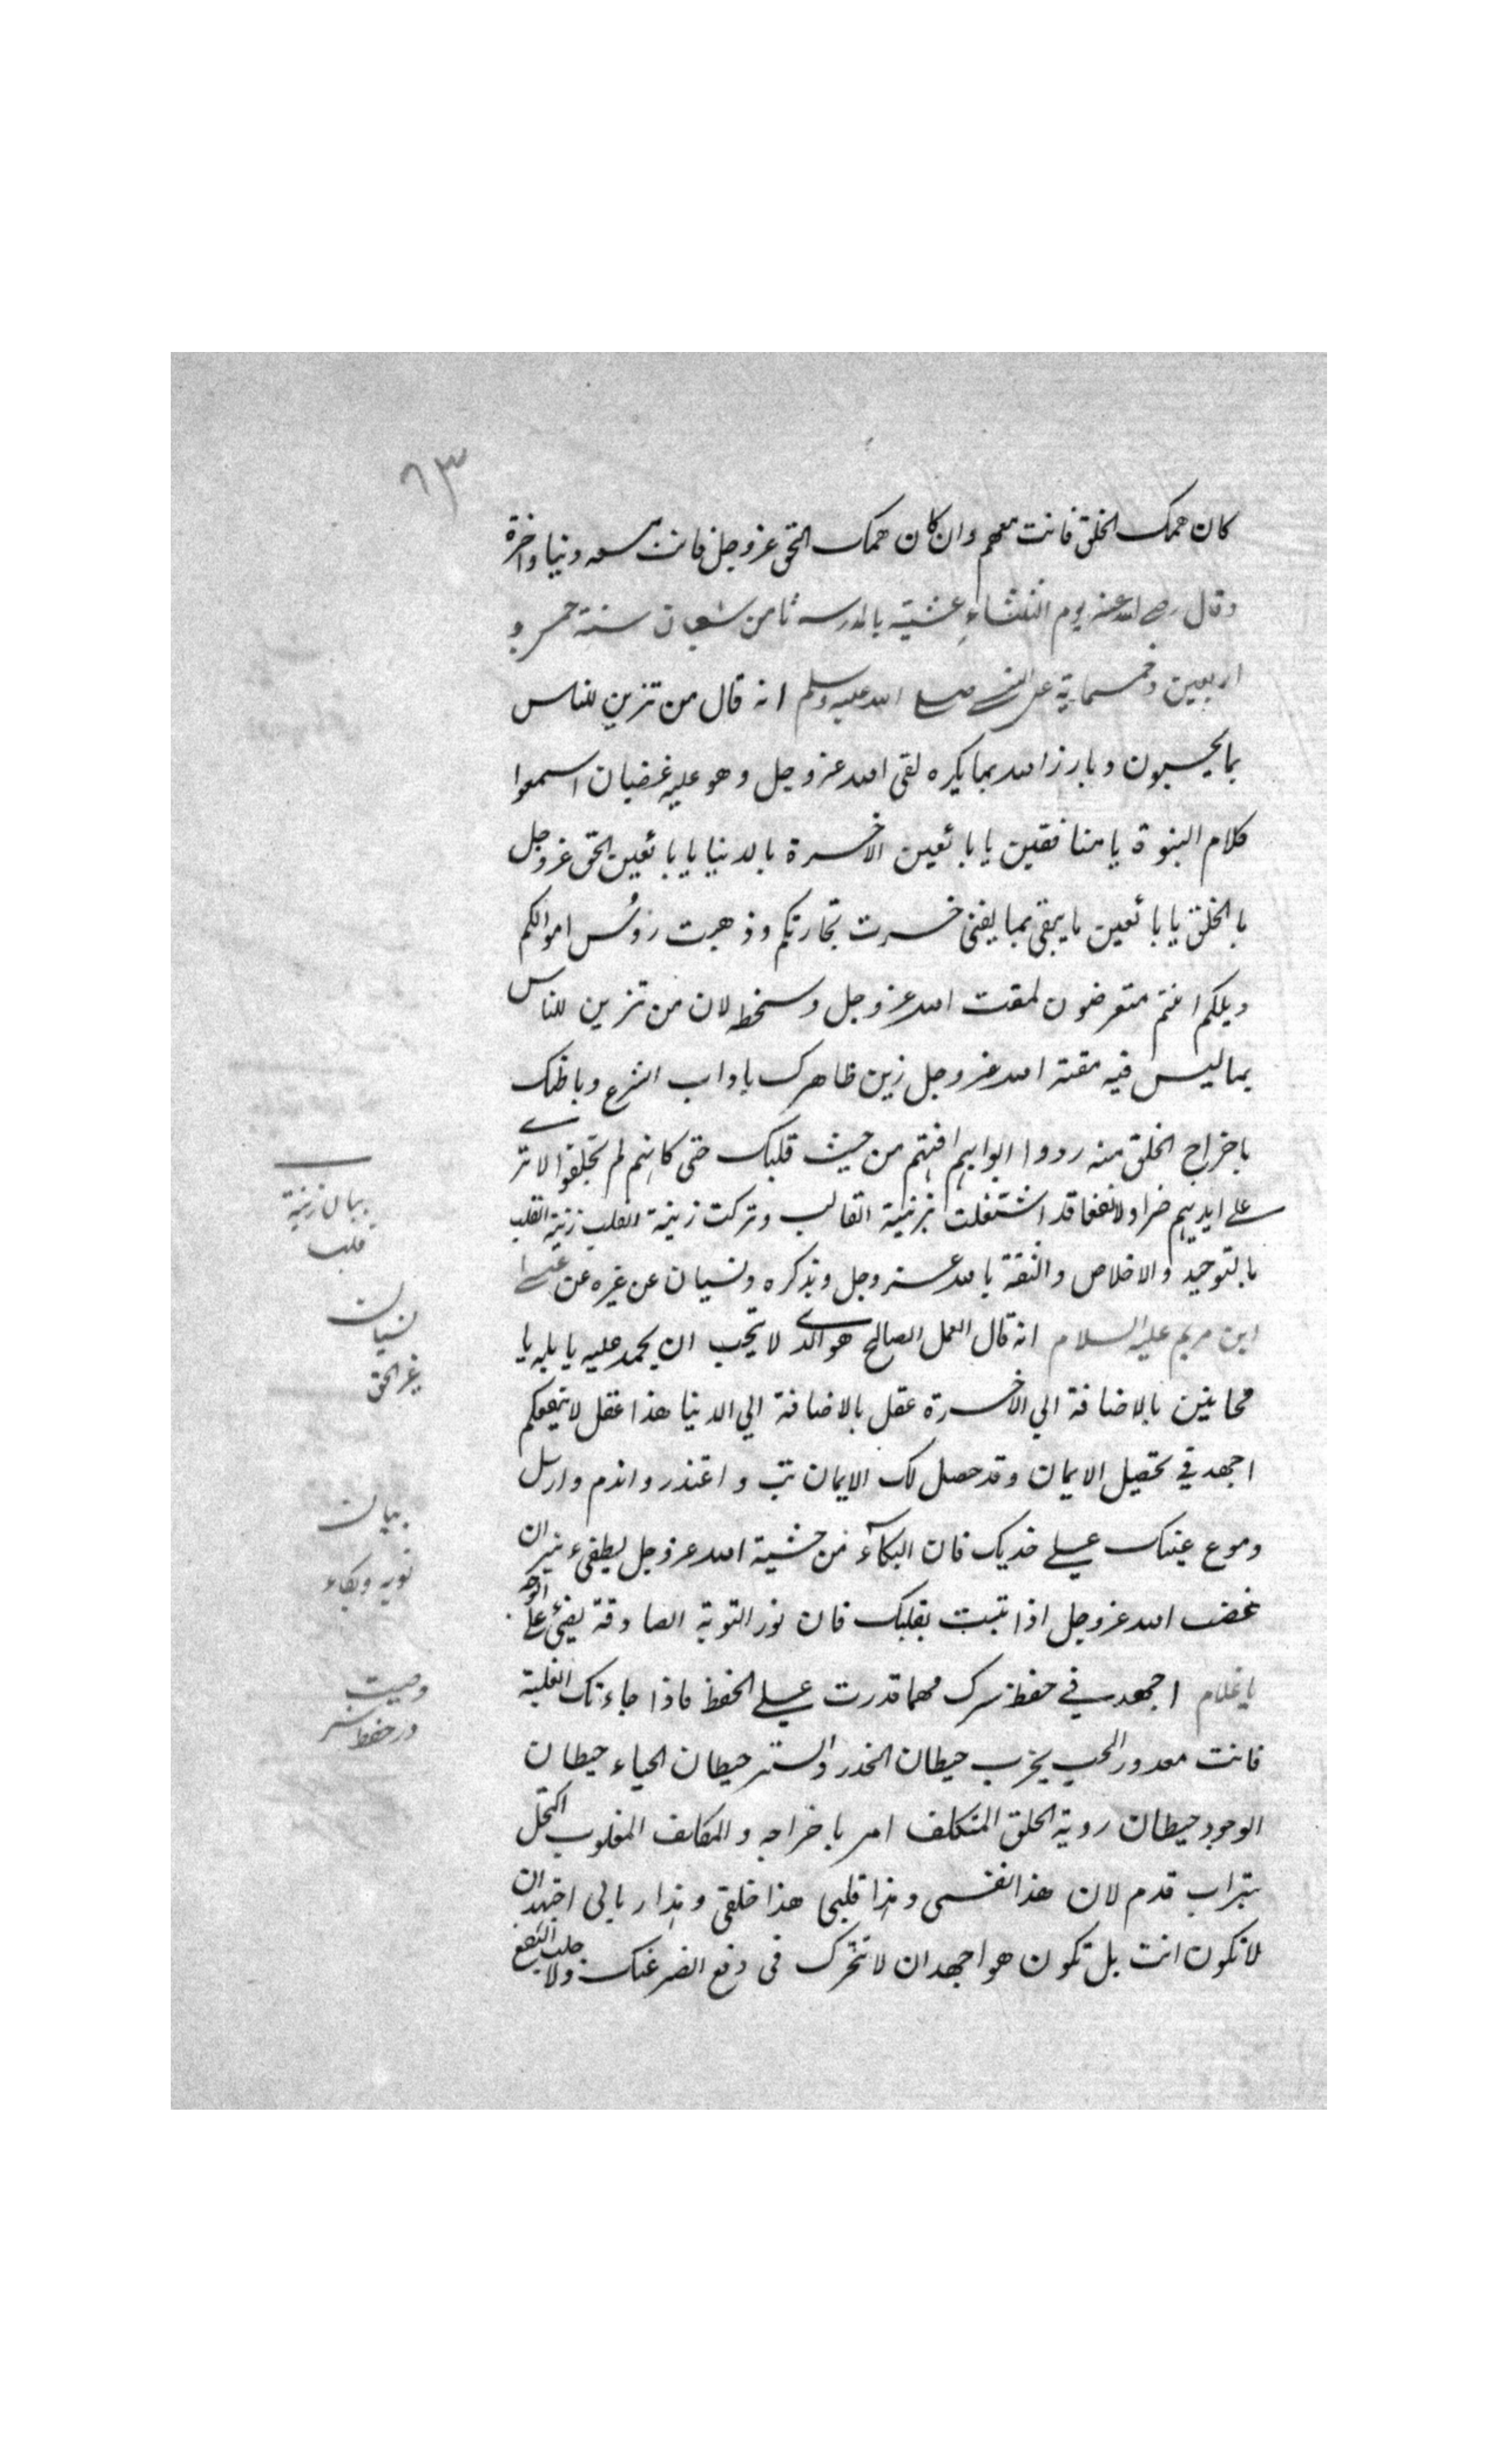 ٦٣
كان همك الخلق فانت معهم وان كان همك الحق عز وجل فانت معه دنيا واخرة
وقال رضي الله عنه يوم الثلثاء عشية بالمدرسه ثامن شعبان سنة خمس و
اربعين وخمسماية عن النبي صلى الله عليه وسلم انه قال من تزين للناس
بما يحبون وبارز الله بما يكره لقى الله عز وجل وهو عليه غضبان اسمعوا
كلام النبوة يا منافقين يا بائعين الاخرة بالدنيا يا بائعين الحق عز وجل
بالخلق يا بائعين ما يبقى بما يفنى خسرت تجارتكم وذهبت رؤس اموالكم
ويلكم انتم متعرضون لمقت الله عز وجل وسخطه لان من تزين للناس
بما ليس فيه مقته الله عز وجل زين ظاهرك باداب الشرع وباطنك
باخراج الخلق منه ردوا ابوابهم افنهم من حيث قلبك حتى كانهم لم يخلقوا لا ترى
على ايديهم ضرا ولا نفعا قد اشتغلت بزينة القالب وتركت زينة القلب زينة القلب
بالتوحيد والاخلاص والثقة بالله عز وجل وبذكره ونسيان عن غيره عن عيسى
ابن مريم عليه السلام انه قال العمل الصالح هو الذي لا تحب ان يحمد عليه يا بله يا
مجانين بالاضافة الي الاخرة عقل بالاضافة الي الدنيا هذا عقل لا ينفعكم
اجهد في تحصيل الايمان وقد حصل لك الايمان تب واعتذر واندم وارسل
دموع عينك على خديك فان البكاء من خشية الله عز وجل يطفيء نيران
غضب الله عز وجل اذا تبت بقلبك فان نور التوبة الصادقة يضيء على الوجه
يا غلام اجهد في حفظ سرك مهما قدرت على الحفظ فاذا جاءتك الغلبة
فانت معذور الحب يخرب حيطان الخدر والستر حيطان الحياء حيطان
الوجود حيطان روية الخلق المتكلف امر باخراجه والمكاسف المغلوب اكتحل
بتراب قدم لان هذا نفسي وهذا قلبي هذا خلقي وهذا ربالي اجهد ان
لا تكون انت بل تكون هو اجهد ان لا تتحرك في دفع الضر عنك ولا جلب النفع
بيان زينة
قلب
نسيان
غير الحق
بيان
توبه وبكاء
وصيت
در حفظ سر